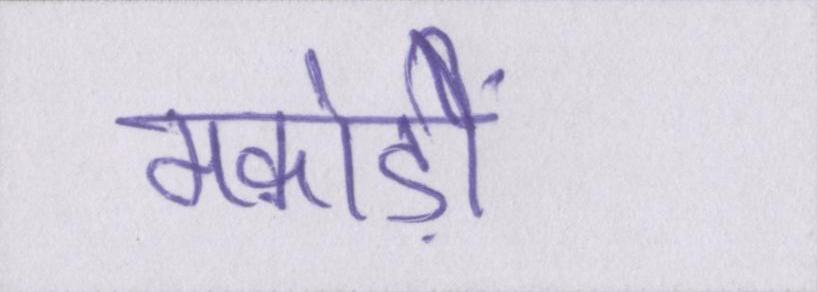 मकोड़ीं